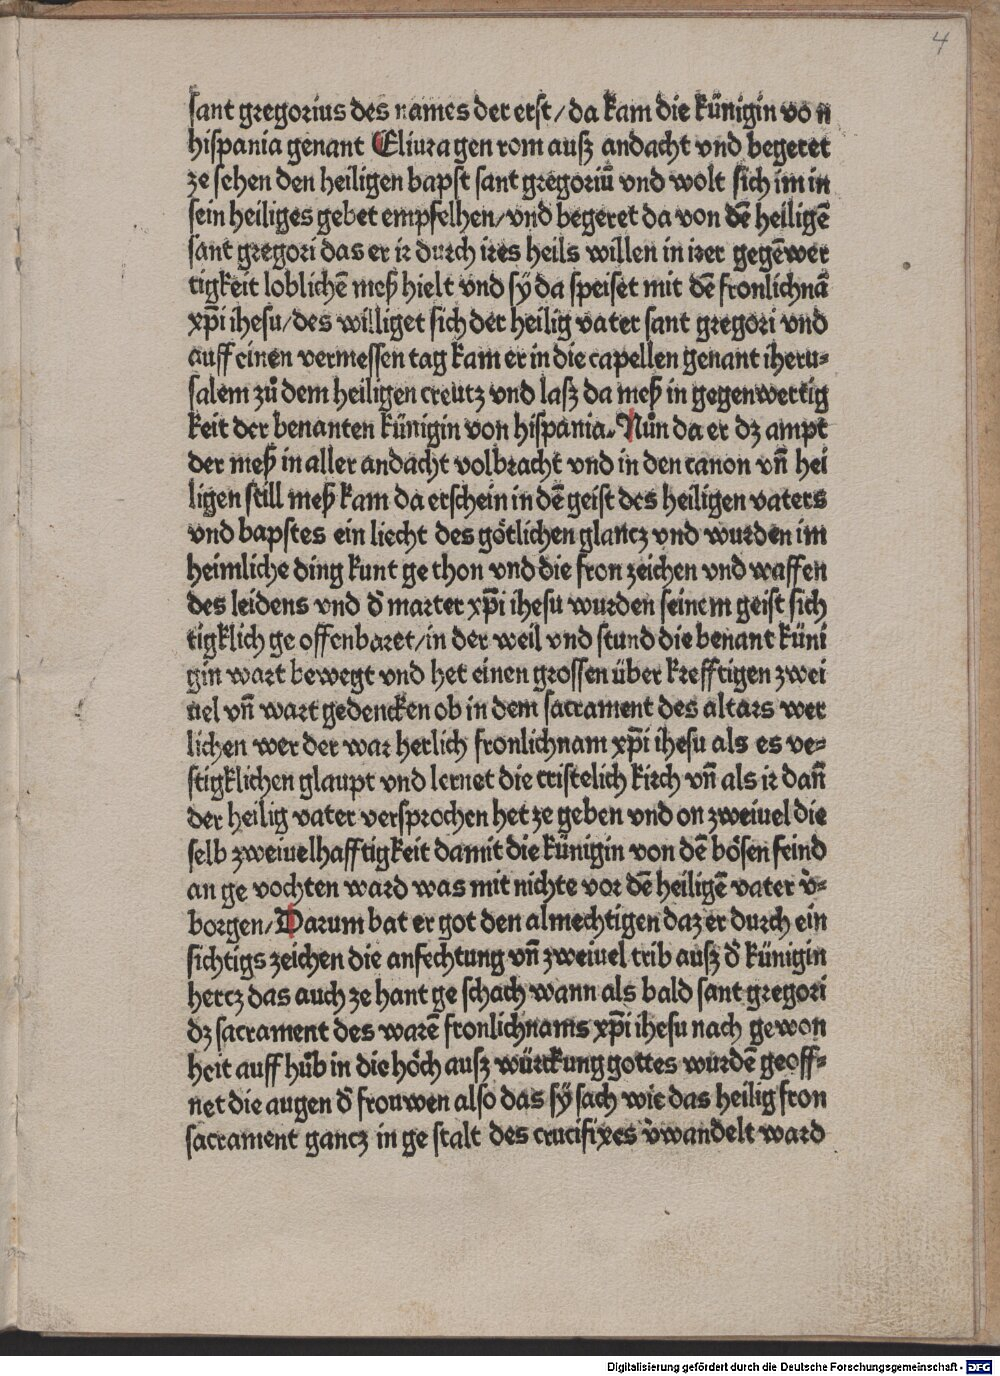 4
sant gregorius des names der erst/ da kam die künigin von
hispania genant Eliura gen rom ausz andacht vnd begeret
ze sehen den heiligen bapst sant gregoriū vnd wolt sich im in
sein heiliges gebet empfelhen/ vnd begeret da von dē heiligē
sant gregori das er ir durch ires heils willen in irer gegēwer
tigkeit loblichē meß hielt vnd sÿ da speiset mit dē fronlichnā
xp̄i ihesu/ des williget sich der heilig vater sant gregori vnd
auff einen vermessen tag kam er in die capellen genant iheru⸗
salem zů dem heiligen creutz vnd lasz da meß in gegenwertig
keit der benanten künigin von hispania. Nůn da er dz ampt
der meß in aller andacht volbracht vnd in den canon vn̄ hei
ligen still meß kam da erschein in dē geist des heiligen vaters
vnd bapstes ein liecht des götlichen glancz vnd wurden im
heimliche ding kunt ge thon vnd die fron zeichen vnd waffen
des leidens vnd d̕ marter xp̄i ihesu wurden seinem geist sich
tigklich ge offenbaret/ in der weil vnd stund die benant küni
gin wart bewegt vnd het einen grossen über krefftigen zwei
uel vn̄ wart gedencken ob in dem sacrament des altars wer
lichen wer der war herlich fronlichnam xp̄i ihesu als es ve⸗
stigklichen glaupt vnd lernet die cristelich kirch vn̄ als ir dan̄
der heilig vater versprochen het ze geben vnd on zweiuel die
selb zweiuelhafftigkeit damit die künigin von dē bösen feind
an ge vochten ward was mit nichte vor dē heiligē vater v̕⸗
borgen/ Darum bat er got den almechtigen daz er durch ein
sichtigs zeichen die anfechtung vn̄ zweiuel trib ausz d̕ künigin
hercz das auch ze hant ge schach wann als bald sant gregori
dz sacrament des warē fronlichnams xp̄i ihesu nach gewon
heit auff hůb in die höch ausz würckung gottes wurdē geoff⸗
net die augen d̕ frouwen also das sÿ sach wie das heilig fron
sacrament gancz in ge stalt des crucifixes v̕wandelt ward
Digitalisierung gefördert durch die Deutsche Forschungsgemeinschaft - DFG